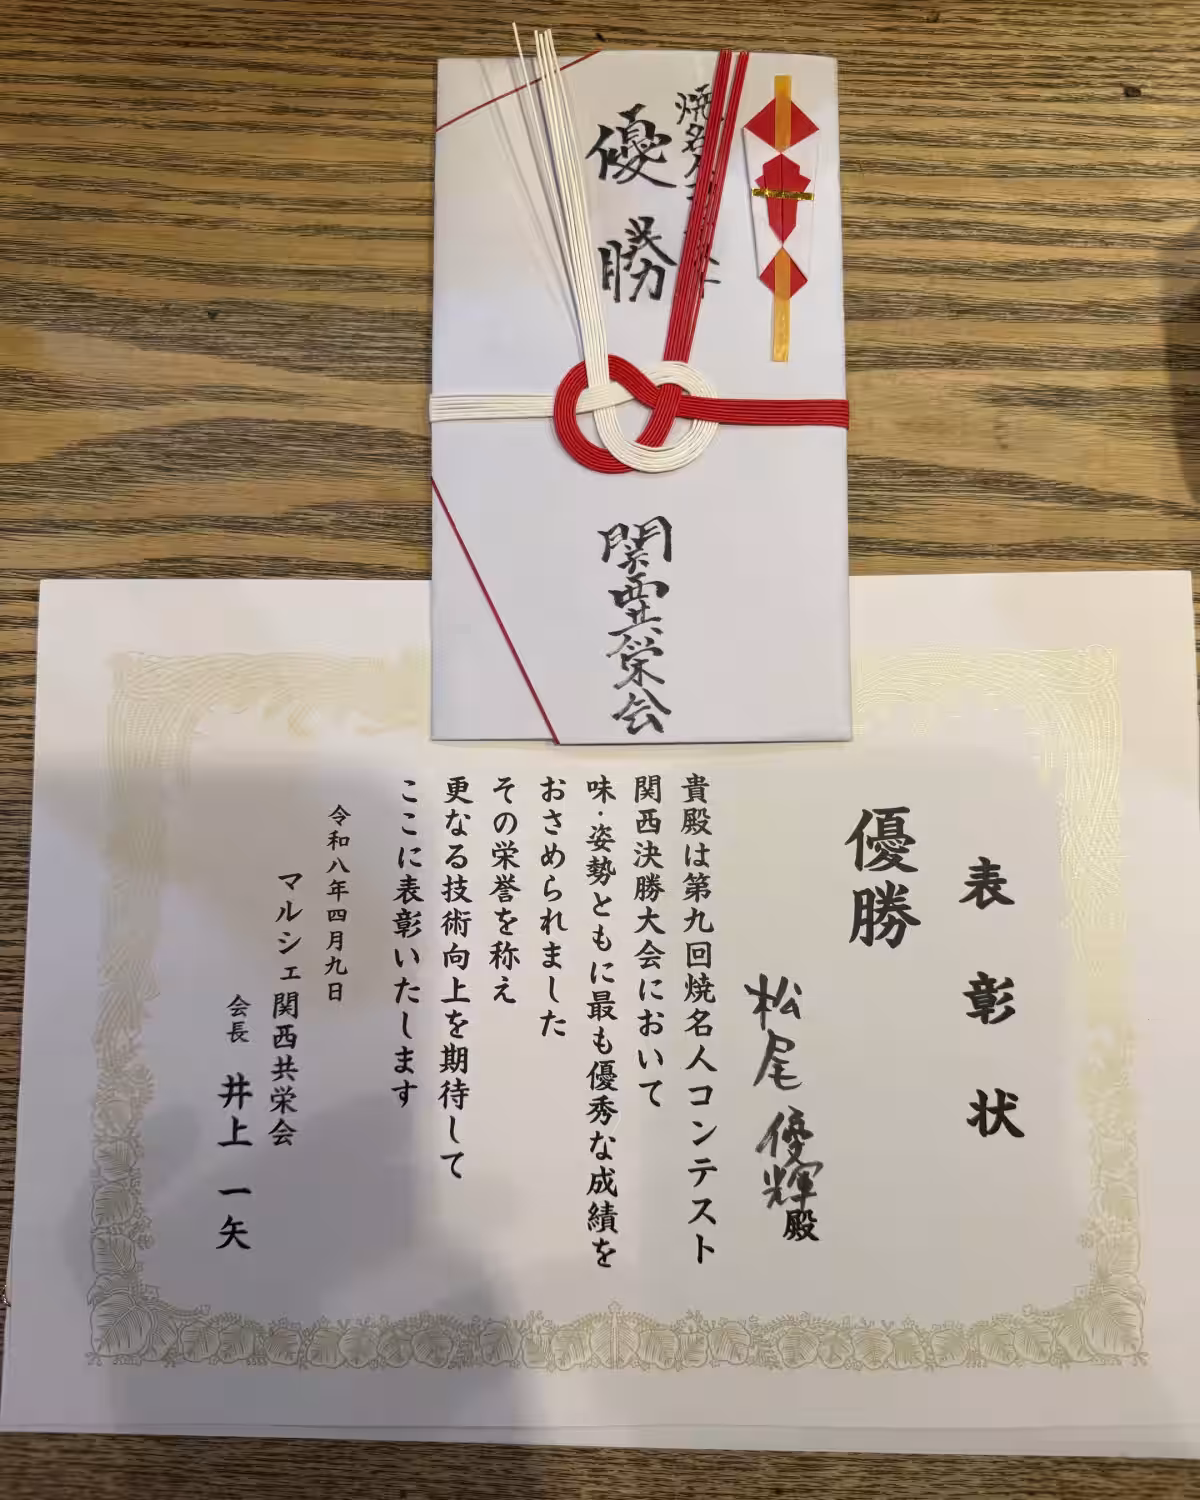 優勝
関西共栄会
表彰状
優勝
松尾優輝殿
貴殿は第九回焼名人コンテスト
関西決勝大会において
味・姿勢ともに最も優秀な成績を
おさめられました
その栄誉を称え
更なる技術向上を期待して
ここに表彰いたします
令和八年四月九日
マルシェ関西共栄会
会長 井上 一矢